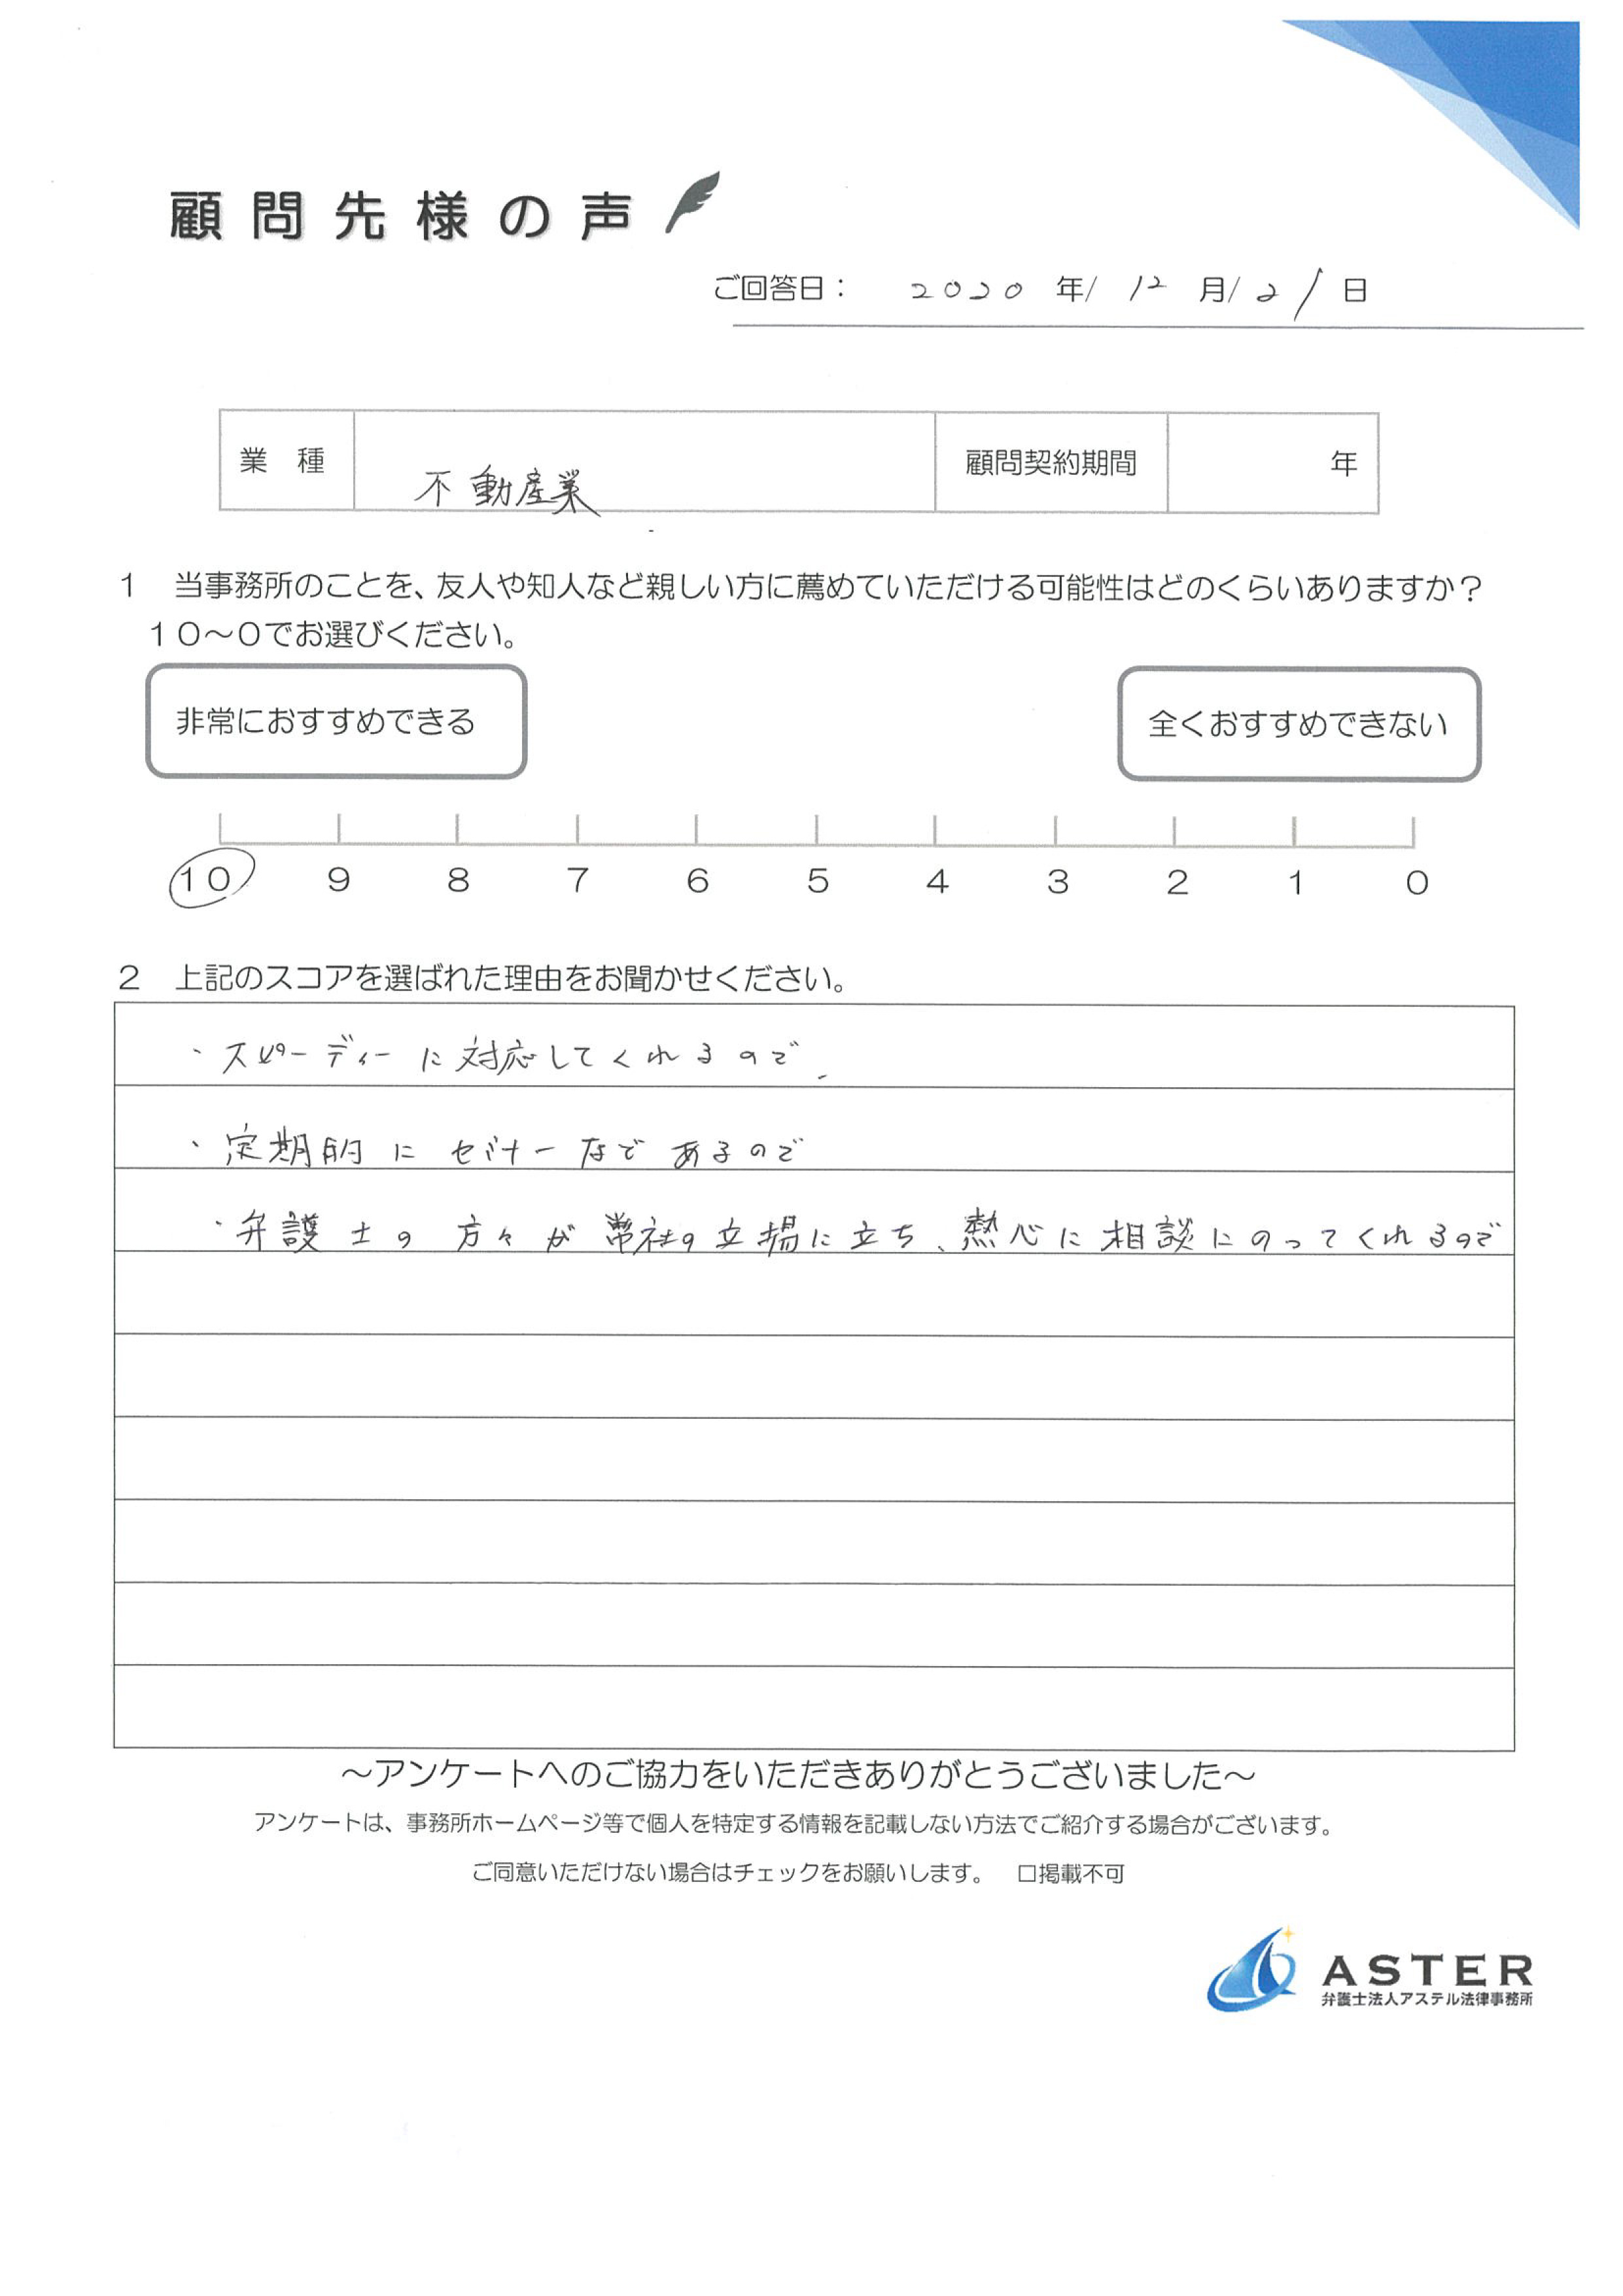 顧問先様の声
ご回答日： 2020 年/ 12 月/ 21 日
業 種 不動産業 顧問契約期間 年
１ 当事務所のことを、友人や知人など親しい方に薦めていただける可能性はどのくらいありますか？
１０～０でお選びください。
非常におすすめできる 全くおすすめできない
10 9 8 7 6 5 4 3 2 1 0
２ 上記のスコアを選ばれた理由をお聞かせください。
・スピーディーに対応してくれるので、
・定期的に セミナーなどあるので
・弁護士の方々が弊社の立場に立ち、熱心に相談にのってくれるので
～アンケートへのご協力をいただきありがとうございました～
アンケートは、事務所ホームページ等で個人を特定する情報を記載しない方法でご紹介する場合がございます。
ご同意いただけない場合はチェックをお願いします。 □掲載不可
ASTER
弁護士法人アステル法律事務所